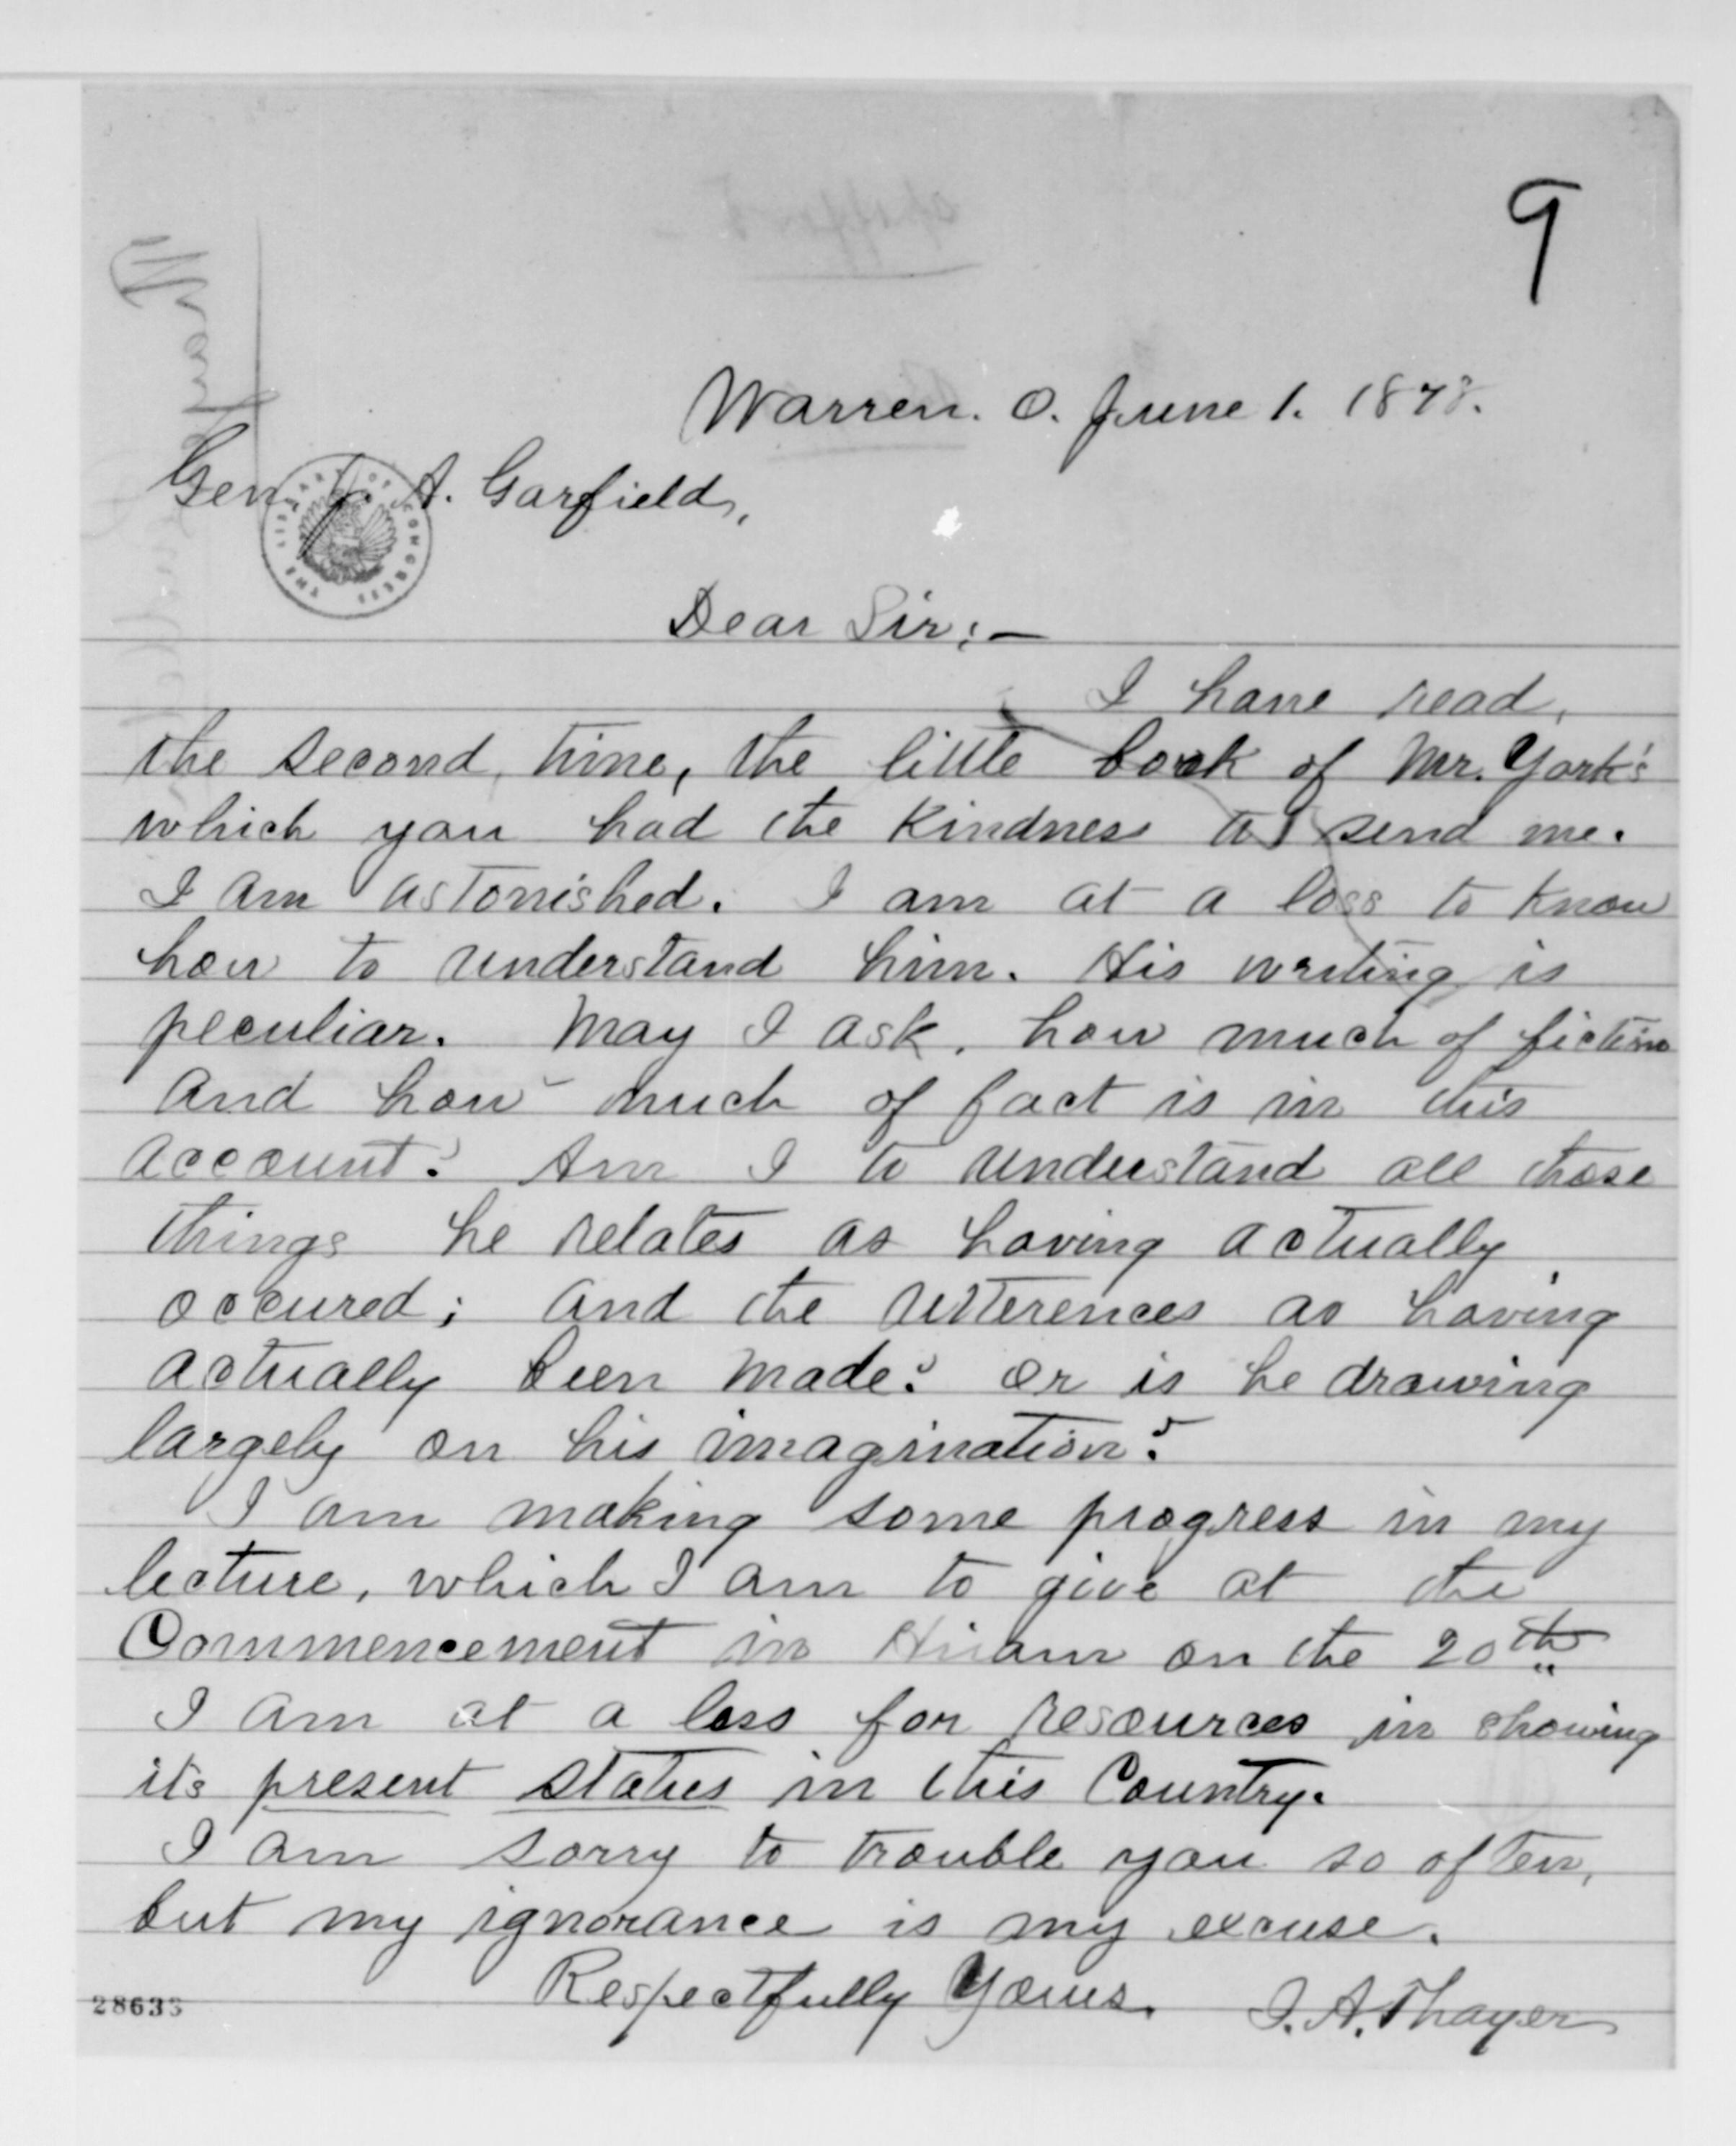 9
Warren. O. June 1. 1878.
Gen. J. A. Garfield,
THE LIBRARY OF CONGRESS
Dear Sir;—
I have read,
the second, time, the little book of Mr. York's
which you had the kindness to send me.
I am astonished. I am at a loss to know
how to understand him. His writing is
peculiar. May I ask, how much of fiction
and how much of fact is in this
account? Am I to understand all those
things he relates as having actually
occured; and the utterences as having
actually been made? or is he drawing
largely on his imagination?
I am making some progress in my
lecture, which I am to give at the
Commencement in Hiram on the 20th
I am at a loss for resources in showing
its present status in this Country.
I am sorry to trouble you so often,
but my ignorance is my excuse.
Respectfully Yours. I. A. Thayer
28633